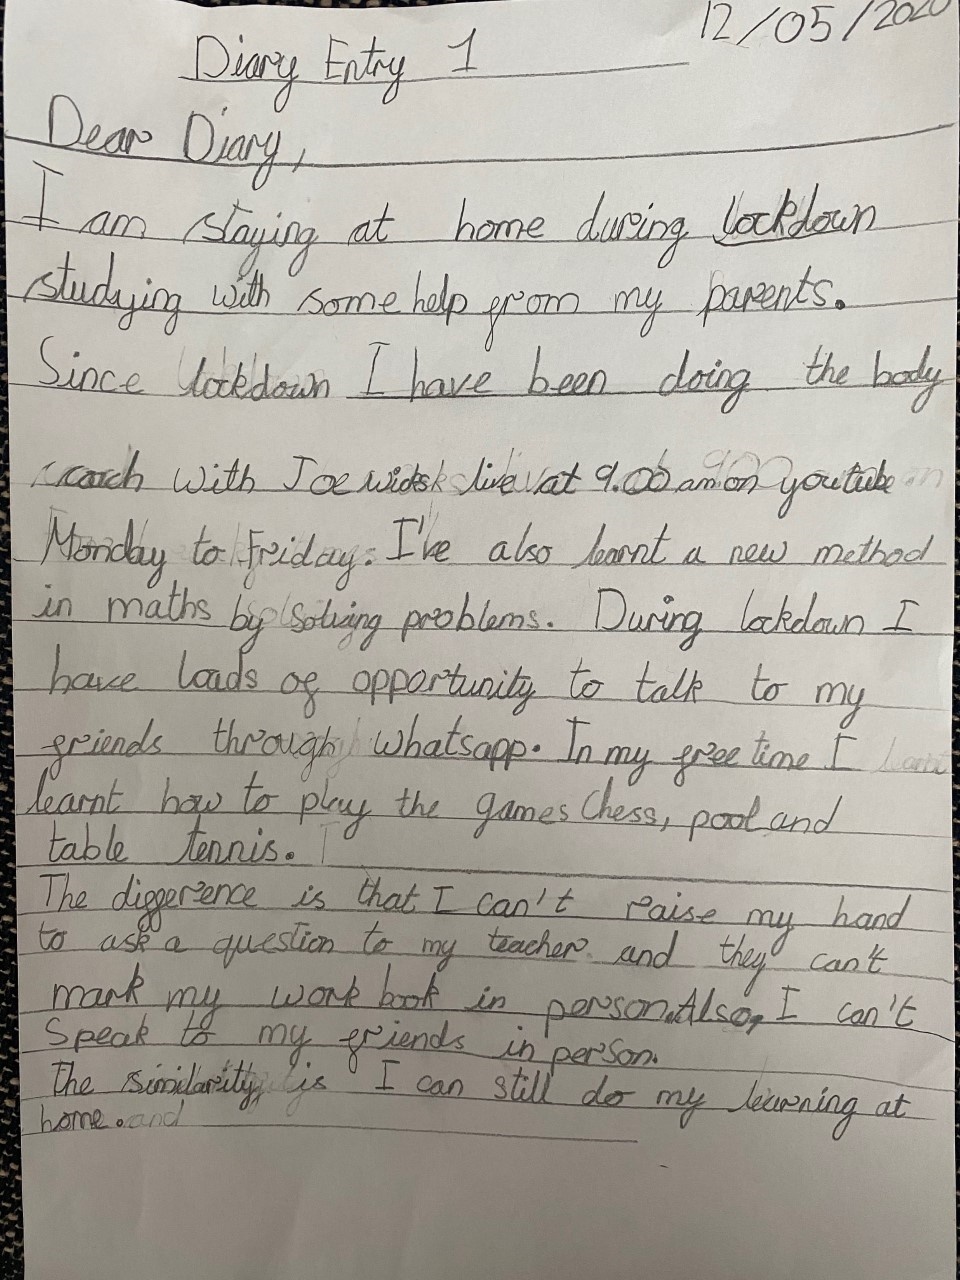 12/05/2020
Diary Entry 1
Dear Diary,
I am staying at home during lockdown
studying with some help from my parents.
Since lockdown I have been doing the body
coach with Joe wicks live at 9.00 am on youtube
Monday to Friday. I've also learnt a new method
in maths by solving problems. During lockdown I
have loads of opportunity to talk to my
friends through whatsapp. In my free time I
learnt how to play the games Chess, pool and
table tennis.
The difference is that I can't raise my hand
to ask a question to my teacher and they can't
mark my work book in person. Also, I can't
speak to my friends in person.
The similarity is I can still do my learning at
home.